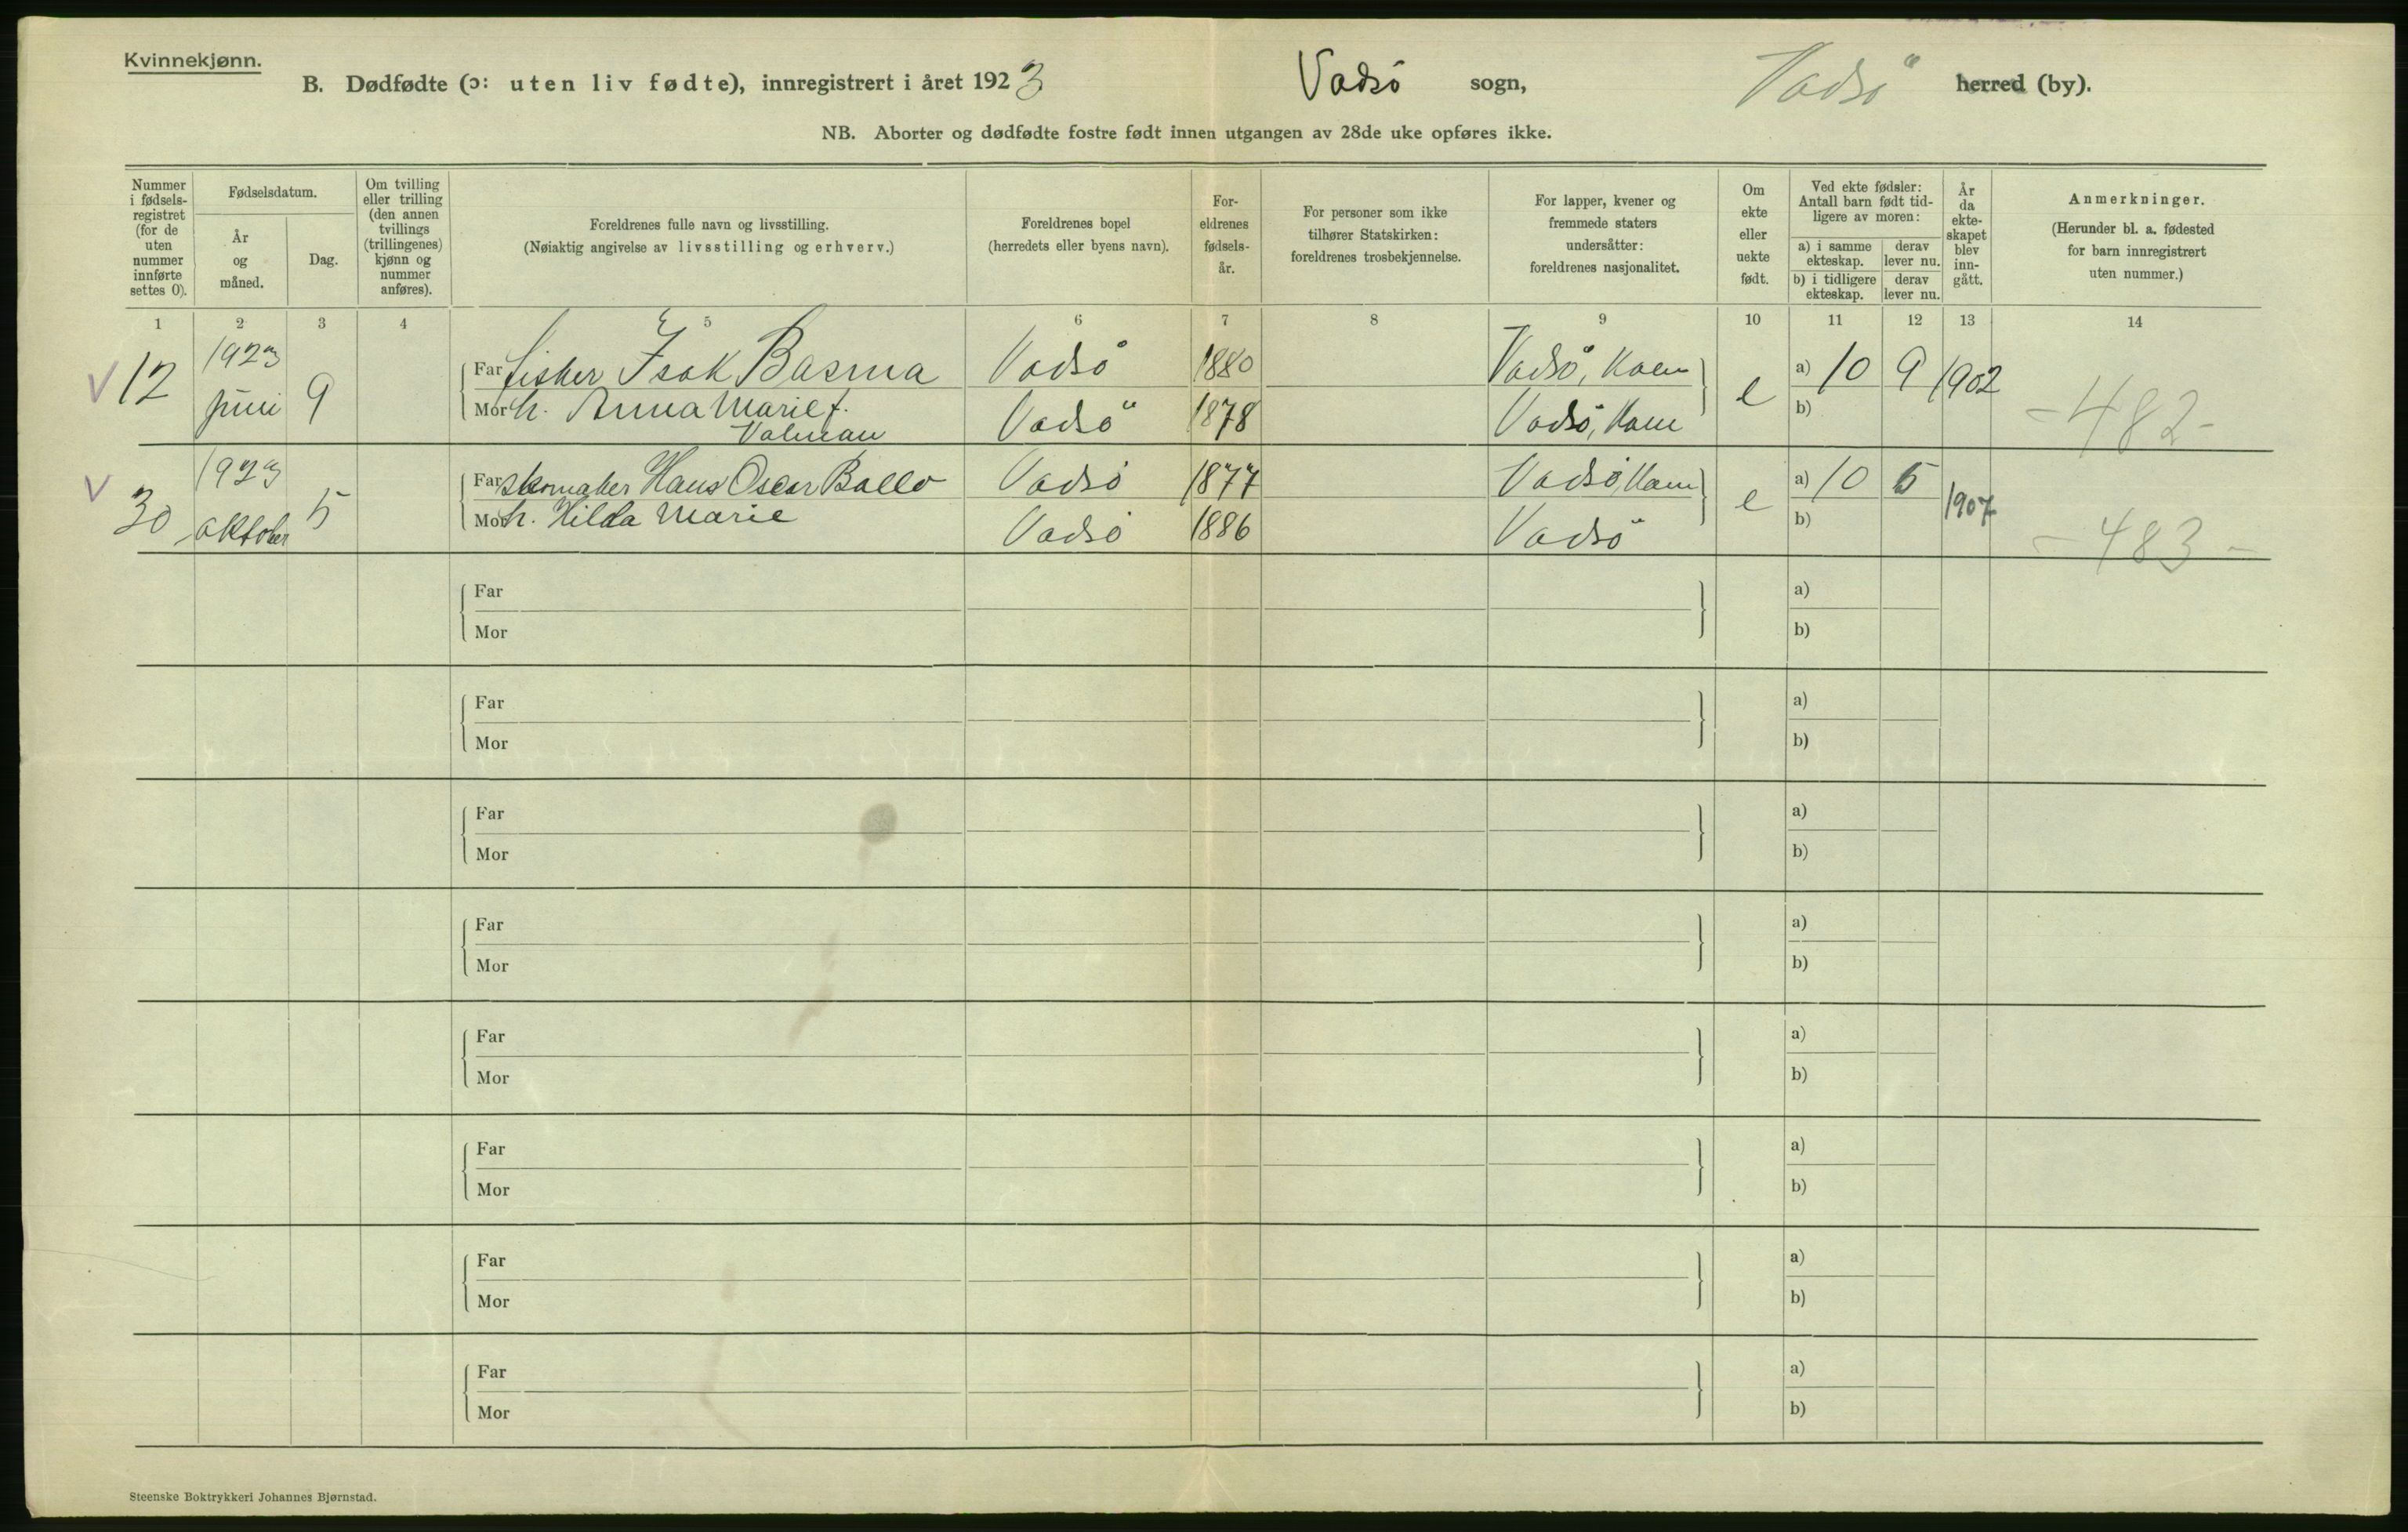 Kvinnekjønn.
B. Dødfødte (ɔ: uten liv fødte), innregistrert i året 1923 Vadsö sogn, Vadsö herred (by).
NB. Aborter og dødfødte fostre født innen utgangen av 28de uke opføres ikke.
Nummer i fødsels-registret (for de uten nummer innførte settes 0).
Fødselsdatum.
År og måned.
Dag.
Om tvilling eller trilling (den annen tvillings (trillingenes) kjønn og nummer anføres).
Foreldrenes fulle navn og livsstilling.
(Nøiaktig angivelse av livsstilling og erhverv.)
Foreldrenes bopel
(herredets eller byens navn).
For-eldrenes fødsels-år.
For personer som ikke tilhører Statskirken: foreldrenes trosbekjennelse.
For lapper, kvener og fremmede staters undersåtter: foreldrenes nasjonalitet.
Om ekte eller uekte født.
Ved ekte fødsler: Antall barn født tid-ligere av moren:
a) i samme ekteskap.
derav lever nu.
b) i tidligere ekteskap.
derav lever nu.
År da ekte-skapet blev inn-gått.
Anmerkninger.
(Herunder bl. a. fødested for barn innregistrert uten nummer.)
1 2 3 4 5 6 7 8 9 10 11 12 13 14
V 12 1923 juni 9
Far fisker Isak Basma Vadsö 1880 Vadsö, e a) 10 9 1902
Mor h. Anna Marie f. Vadsö 1878 Vadsö, b) -482-
V 30 1923 oktober 5
Far skomaker Hans Oscar Ballo Vadsö 1877 Vadsö, e a) 10 5 1907
Mor h. Hilda Marie Vadsö 1886 Vadsö b) -483-
Far a)
Mor b)
Far a)
Mor b)
Far a)
Mor b)
Far a)
Mor b)
Far a)
Mor b)
Far a)
Mor b)
Far a)
Mor b)
Far a)
Mor b)
Steenske Boktrykkeri Johannes Bjørnstad.